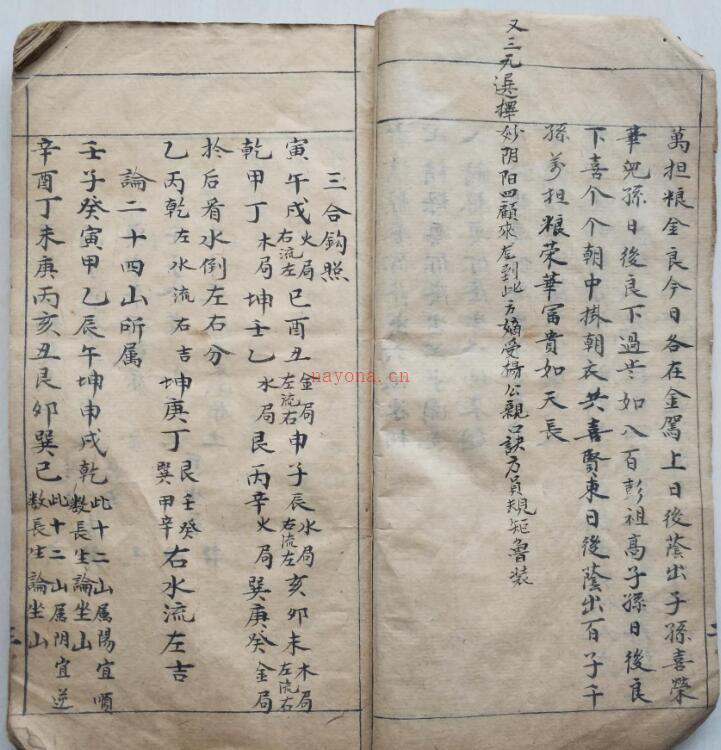 萬担粮金良今日各在金駕上日後蔭出子孫喜榮
華兒孫日後良下過岂如八百彭祖高子孫日後良
下喜个个朝中掛朝衣共喜賢東日後蔭出百子千
孫萬担粮荣華冨貴如天長
又三元選擇妙阴阳四顧來左到此方嫡受揚公親口訣方員規矩魯装
三合鈎照
寅午戌火局右流左巳酉丑金局左流右申子辰水局右流左亥卯未木局左流右
乾甲丁木局坤壬乙水局艮丙辛火局巽庚癸金局
扵后看水倒左右分
乙丙乾左水流右吉坤庚丁艮壬癸巽甲辛右水流左吉
論二十四山所属
壬子癸寅甲乙辰午坤申戌乾此十二山属陽宜順数長生論坐山
辛酉丁未庚丙亥丑艮卯巽巳此十二山属阴宜逆数長生論坐山
nayona.cn